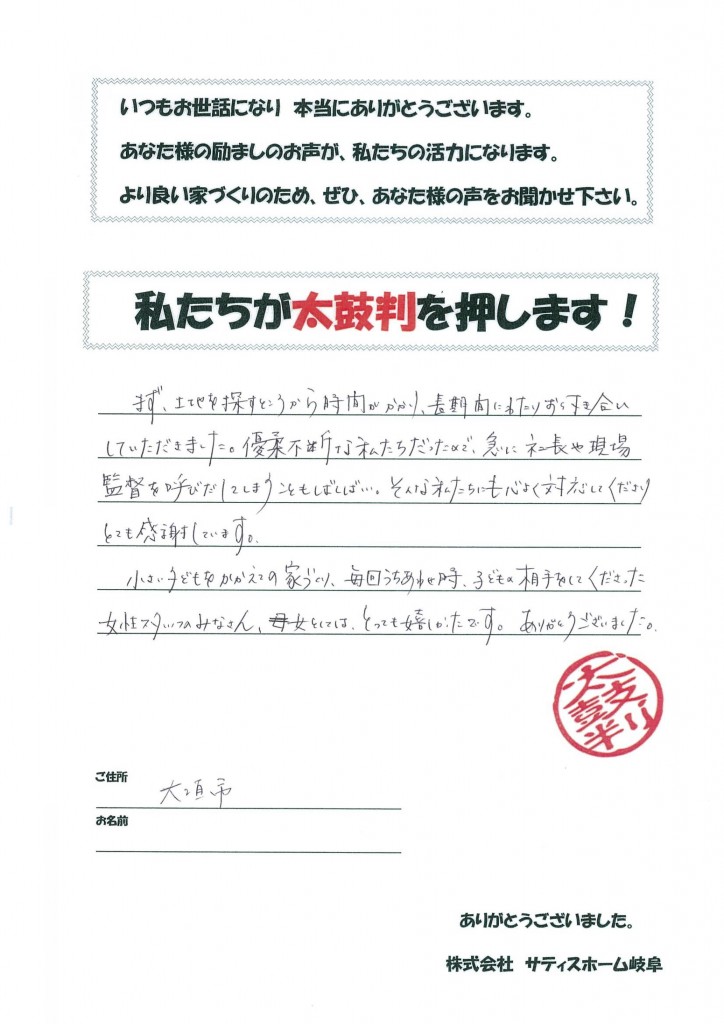 いつもお世話になり 本当にありがとうございます。
あなた様の励ましのお声が、私たちの活力になります。
より良い家づくりのため、ぜひ、あなた様の声をお聞かせ下さい。
私たちが太鼓判を押します!
まず、土地を探すところから時間がかかり、長期間にわたりおつき合い
していただきました。優柔不断な私たちだったので、急に社長や現場
監督を呼びだしてしまうこともしばしば。そんな私たちにも心よく対応してくださり
とても感謝しています。
小さい子どもをかかえての家づくり、毎回うちあわせ時、子どもの相手をしてくださった
女性スタッフのみなさん、母としては、とっても嬉しかったです。ありがとうございました。
太鼓判
ご住所 大垣市
お名前
ありがとうございました。
株式会社 サティスホーム岐阜